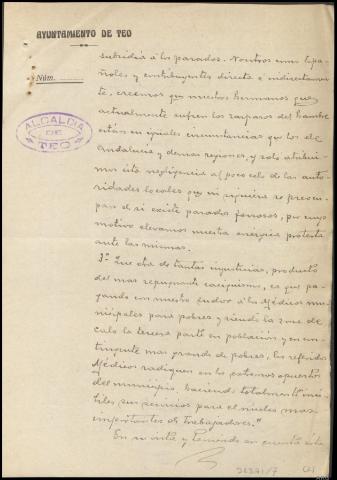 AYUNTAMIENTO DE TEO
Núm.
ALCALDIA
DE
TEO
subsidia á los parados. Nosotros como Espa-
ñoles y contribuyentes directa é indirectamen-
te, creemos que nuestros hermanos que
actualmente sufren los zarpazos del hambre
estan en iguales circunstancias que los de
Andalucia y demas regiones, y solo atribui-
mos esta negligencia al poco celo de las auto-
ridades locales que ni siquiera se preocu-
pan de si existe parados forzosos, por cuyo
motivo elevamos nuestra energica protesta
ante las mismas.
3º Que otra de tantas injusticias, producto
del mas repugnante caciquismo, es que pa-
gando con nuestro sudor á los Médicos mu-
nicipales para pobres y siendo la zona de
Calo la tercera parte en poblacion y en con-
tingente mas grande de pobres, los referidos
Médicos radiquen en los extremos opuestos
del municipio, haciendo totalmente inu-
tiles sus servicios para el nucleo mas
importantes de trabajadores."
En su vista y teniendo en cuenta